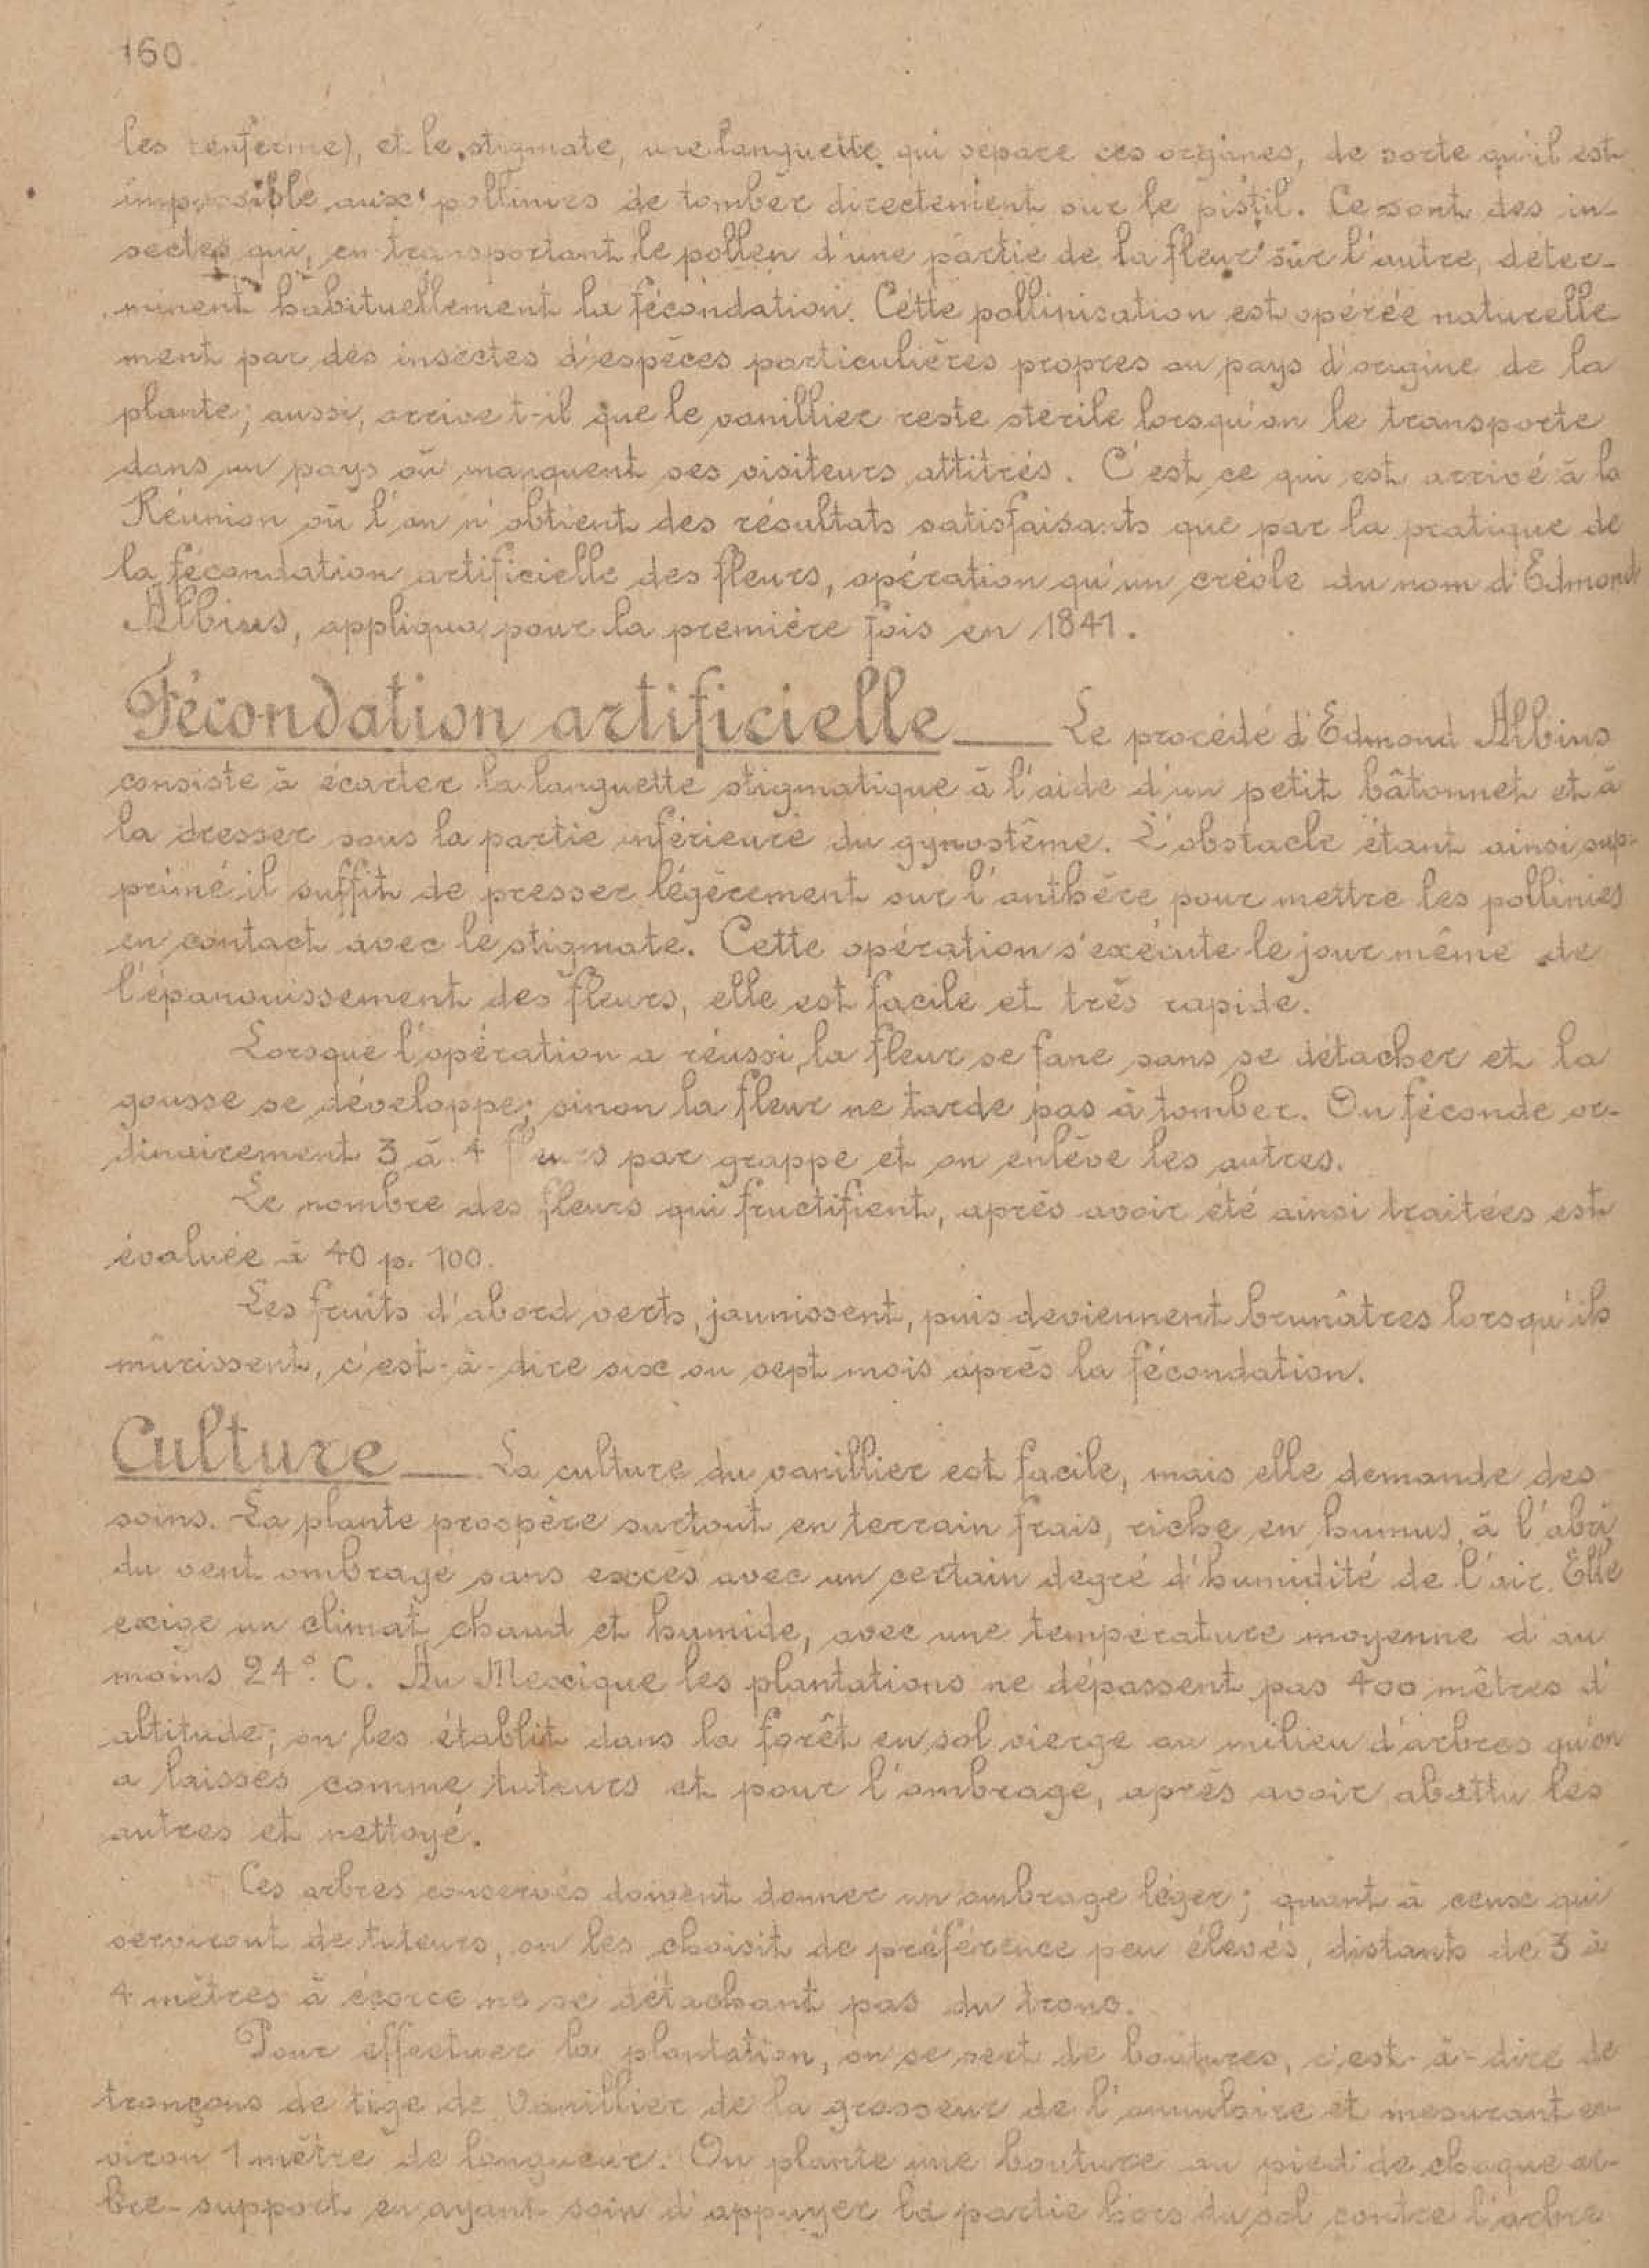 160
les renferme), et le stigmate, une languette qui sépare ces organes, de sorte qu'il est
impossible aux pollinies de tomber directement sur le pistil. Ce sont des in-
sectes qui, en transportant le pollen d'une partie de la fleur sur l'autre, déter-
minent habituellement la fécondation. Cette pollinisation est opérée naturelle
ment par des insectes d'espèces particulières propres au pays d'origine de la
plante; aussi, arrive t-il que le vanillier reste stérile lorsqu'on le transporte
dans un pays où manquent ses visiteurs attitrés. C'est ce qui est arrivé à la
Réunion où l'on n'obtient des résultats satisfaisants que par la pratique de
la fécondation artificielle des fleurs, opération qu'un créole du nom d'Edmond
Albius, appliqua pour la première fois en 1841.
Fécondation artificielle — Le procédé d'Edmond Albius
consiste à écarter la languette stigmatique à l'aide d'un petit bâtonnet et à
la dresser sous la partie inférieure du gynostème. L'obstacle étant ainsi sup-
primé il suffit de presser légèrement sur l'anthère pour mettre les pollinies
en contact avec le stigmate. Cette opération s'exécute le jour même de
l'épanouissement des fleurs, elle est facile et très rapide.
Lorsque l'opération a réussi, la fleur se fane sans se détacher et la
gousse se développe; sinon la fleur ne tarde pas à tomber. On féconde or-
dinairement 3 à 4 fleurs par grappe et on enlève les autres.
Le nombre des fleurs qui fructifient, après avoir été ainsi traitées est
évaluée à 40 p. 100.
Les fruits d'abord verts, jaunissent, puis deviennent brunâtres lorsqu'ils
mûrissent, c'est-à-dire six ou sept mois après la fécondation.
Culture — La culture du vanillier est facile, mais elle demande des
soins. La plante prospère surtout en terrain frais, riche en humus, à l'abri
du vent ombragé sans excès avec un certain degré d'humidité de l'air. Elle
exige un climat chaud et humide, avec une température moyenne d'au
moins 24°. C. Au Mexique les plantations ne dépassent pas 400 mètres d'
altitude; on les établit dans la forêt en sol vierge au milieu d'arbres qu'on
a laissés comme tuteurs et pour l'ombrage, après avoir abattu les
autres et nettoyé.
Ces arbres conservés doivent donner un ombrage léger; quant à ceux qui
serviront de tuteurs, on les choisit de préférence peu élevés, distants de 3 à
4 mètres à écorce ne se détachant pas du tronc.
Pour effectuer la plantation, on se sert de boutures, c'est-à-dire de
tronçons de tige de Vanillier de la grosseur de l'annulaire et mesurant en-
viron 1 mètre de longueur. On plante une bouture au pied de chaque ar-
bre-support en ayant soin d'appuyer la partie hors du sol contre l'arbre